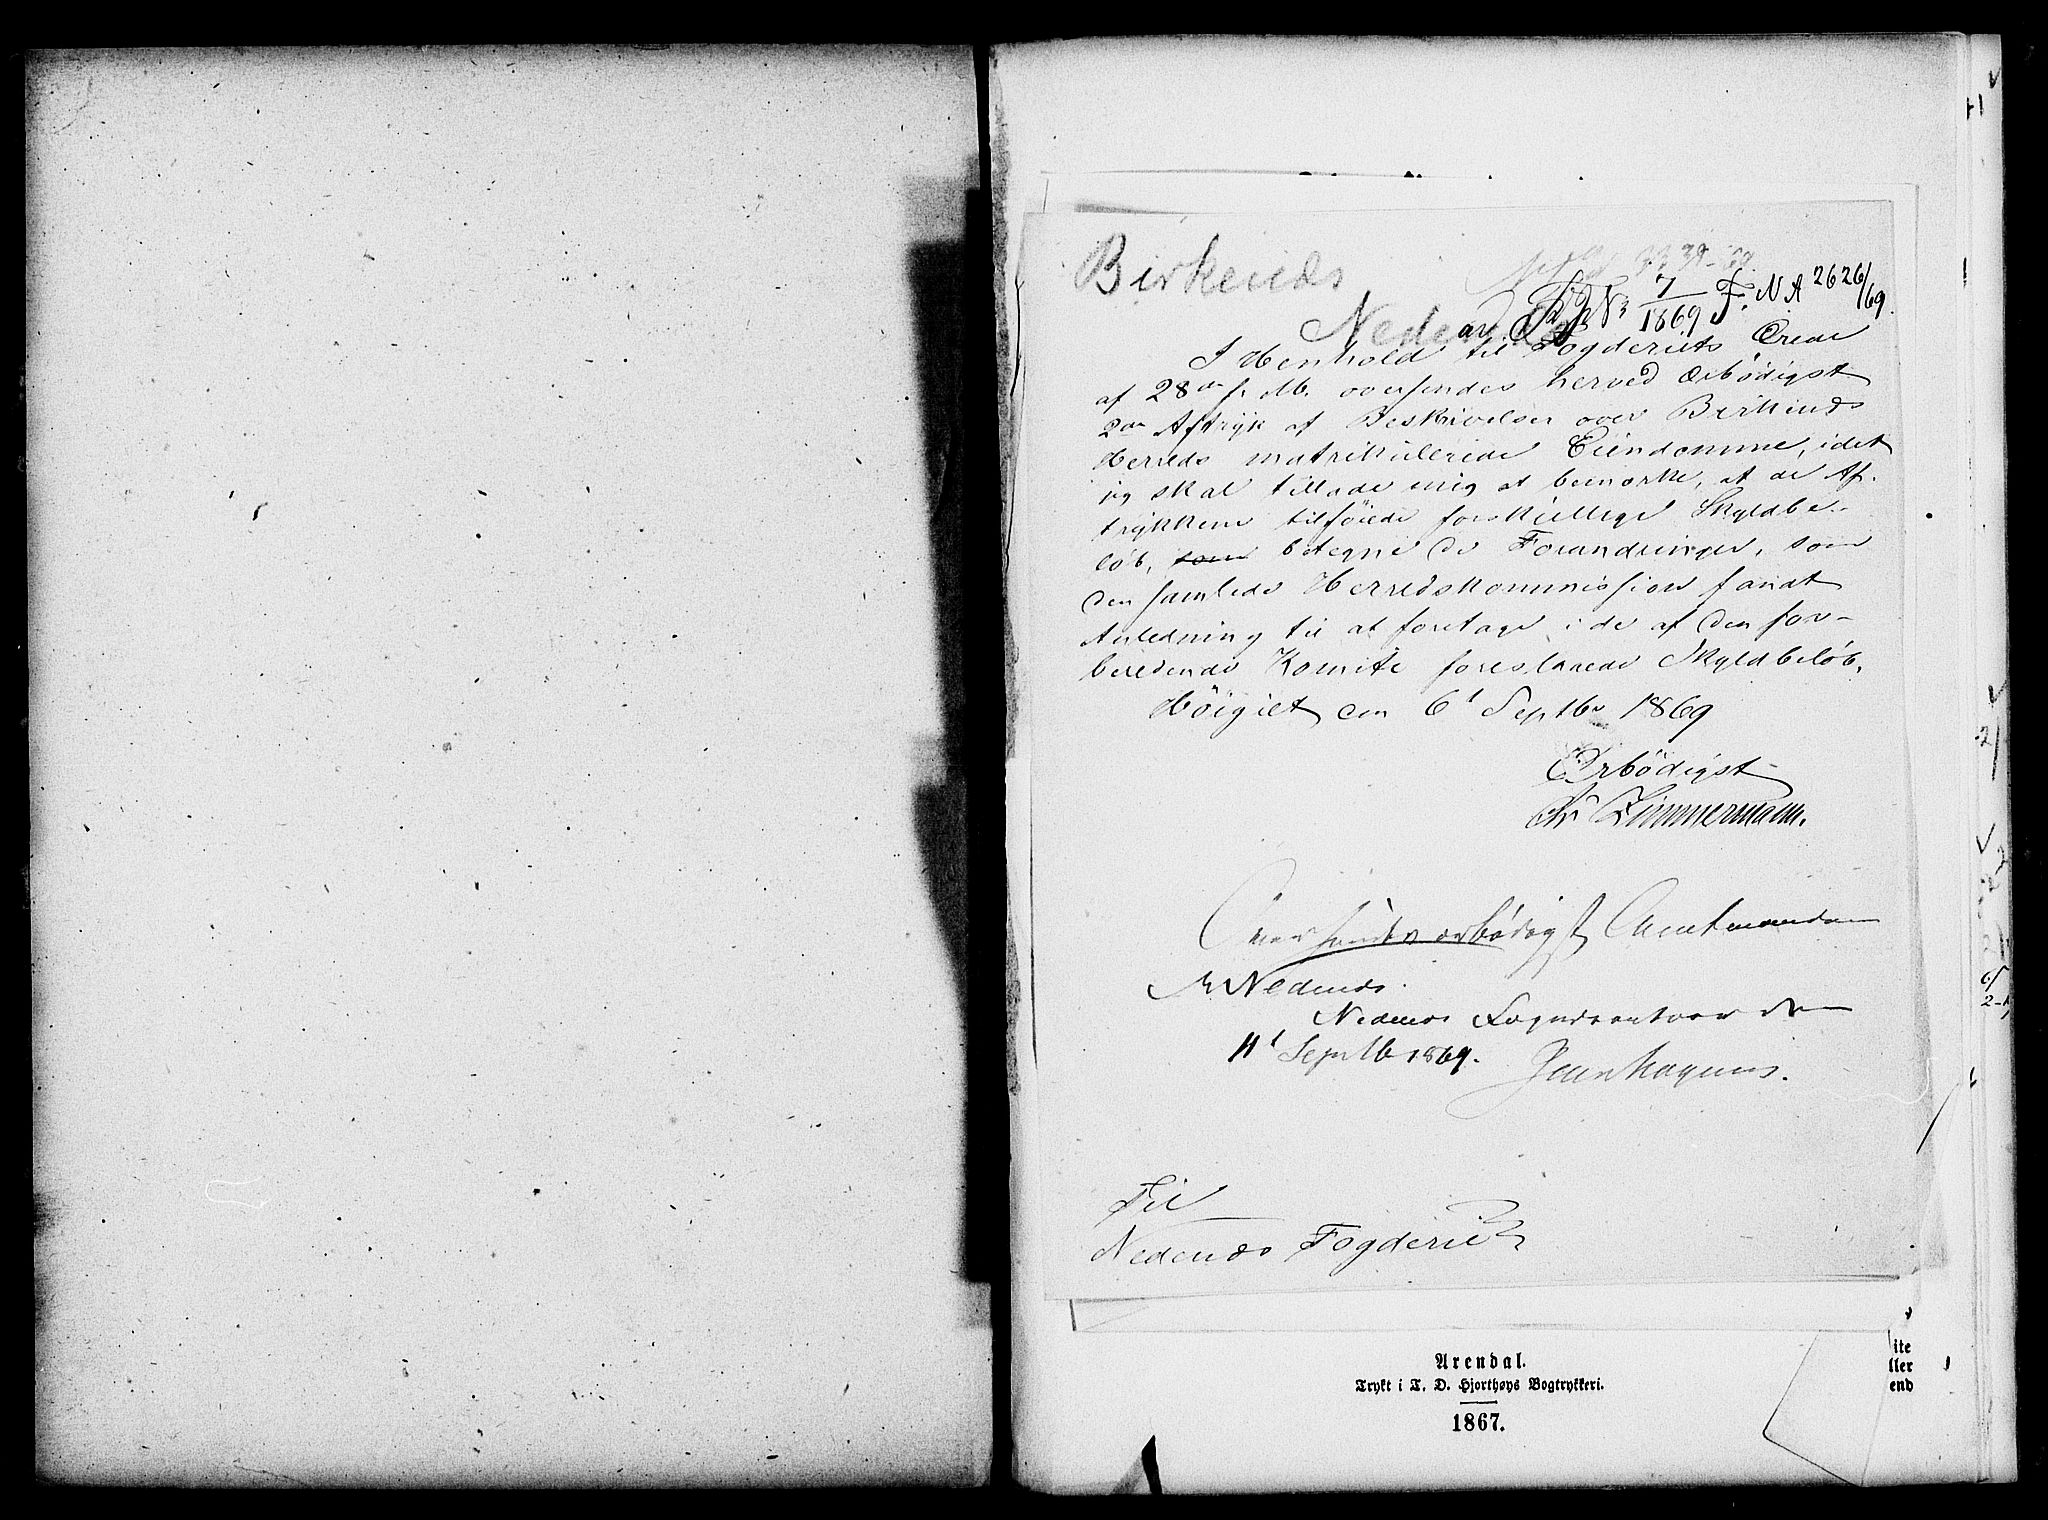 Birkenæs
Nedenæs
7/1869 F. NA 2626/69.
I Henhold til Fogderiets Ordre
af 28de f. M. oversendes herved ærbødigst
2de Aftryk af Beskrivelser over Birkenæs
Herreds matrikulerede Eiendomme, idet
jeg skal tillade mig at bemærke, at de Af-
trykkene tilføiede forskiellige Skyldbe-
løb, som betegne de Forandringer, som
den samlede Herredskommission fandt
Anledning til at foretage i de af den for-
beredende Komite foreslaaede Skyldbeløb.
Høigilt den 6t Septbr 1869
Ærbødigst
Chr Zimmermann.
Oversendes ærbødigst Amtmanden
i Nedenæs.
Nedenæs Fogedcontoir den
11t Septb 1869.
Til
Nedenæs Fogderie
Arendal.
Trykt i T. D. Hjorthøys Bogtrykkeri.
1867.
ite
ller
end